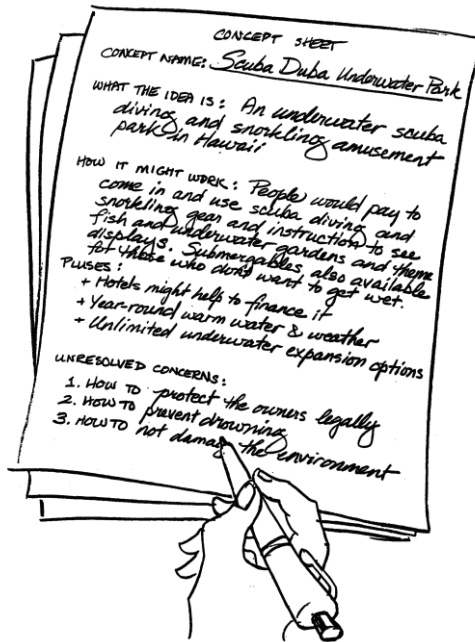 CONCEPT SHEET
CONCEPT NAME: Scuba Duba Underwater Park
WHAT THE IDEA IS: An underwater scuba
diving and snorkling amusement
park in Hawaii
HOW IT MIGHT WORK: People would pay to
come in and use scuba diving and
snorkling gear and instruction to see
fish and underwater gardens and theme
displays. Submergables also available
for those who don't want to get wet.
PLUSES:
+ Hotels might help to finance it
+ Year-round warm water & weather
+ Unlimited underwater expansion options
UNRESOLVED CONCERNS:
1. HOW TO protect the owners legally
2. HOW TO prevent drowning
3. HOW TO not damage the environment